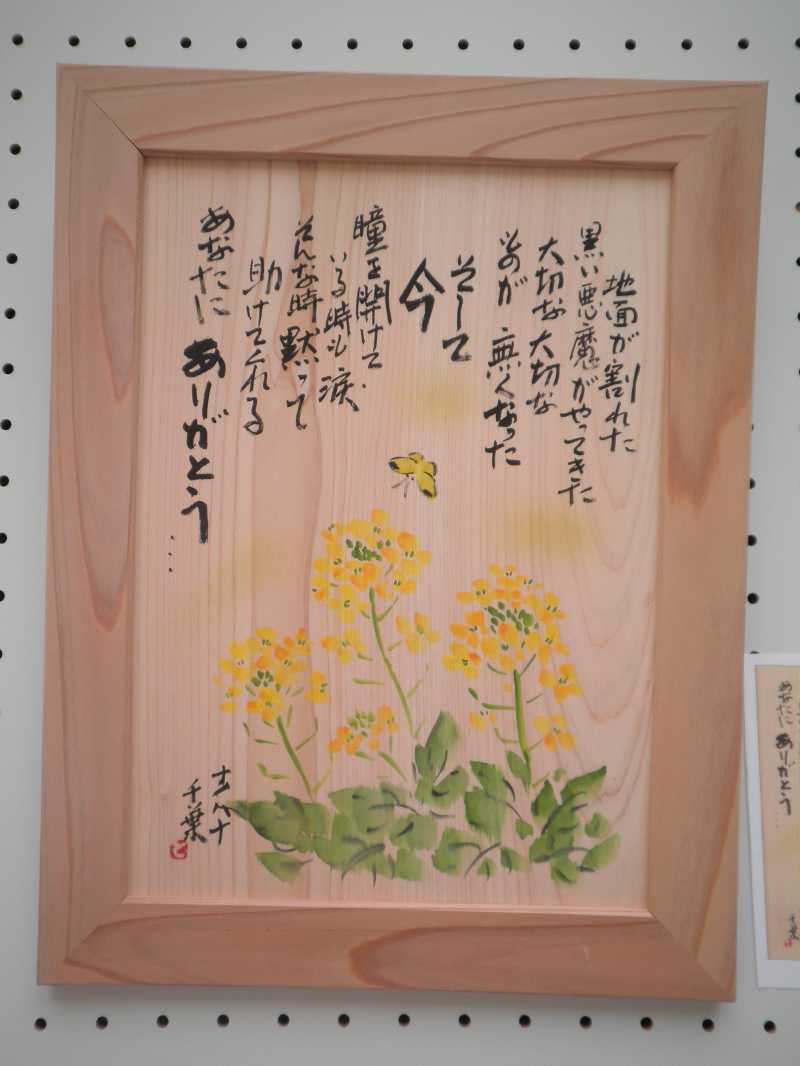 地面が割れた
黒い悪魔がやってきた
大切な大切な
ものが無くなった
そして
今
瞳を開けて
いる時も涙
そんな時黙って
助けてくれる
あなたに ありがとう...
千葉
あなたに ありがとう...
千葉